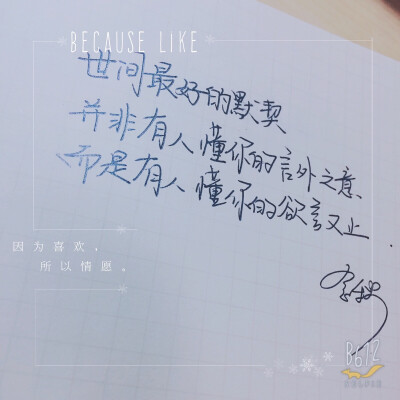 BECAUSE LIKE
世间最好的默契
并非有人懂你的言外之意、
而是有人懂你的欲言又止
因为喜欢，
所以情愿。
B612